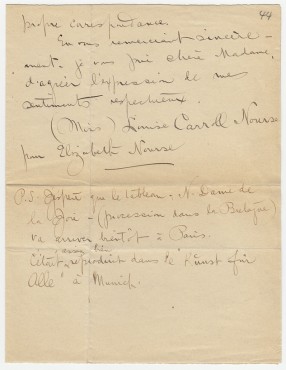 44
propre correspondance.
En vous remerciant sincère-
ment, je vous prie chère Madame,
d'agréer l'expression de mes
sentiments respectueux.
(Miss) Louise Carroll Nourse
pour Elizabeth Nourse
P.S. J'espère que le tableau - N. Dame de
la Joie - (procession dans la Bretagne)
va arriver bientôt à Paris.
C'était reproduit dans le "Kunst für
Alle" à Munich.